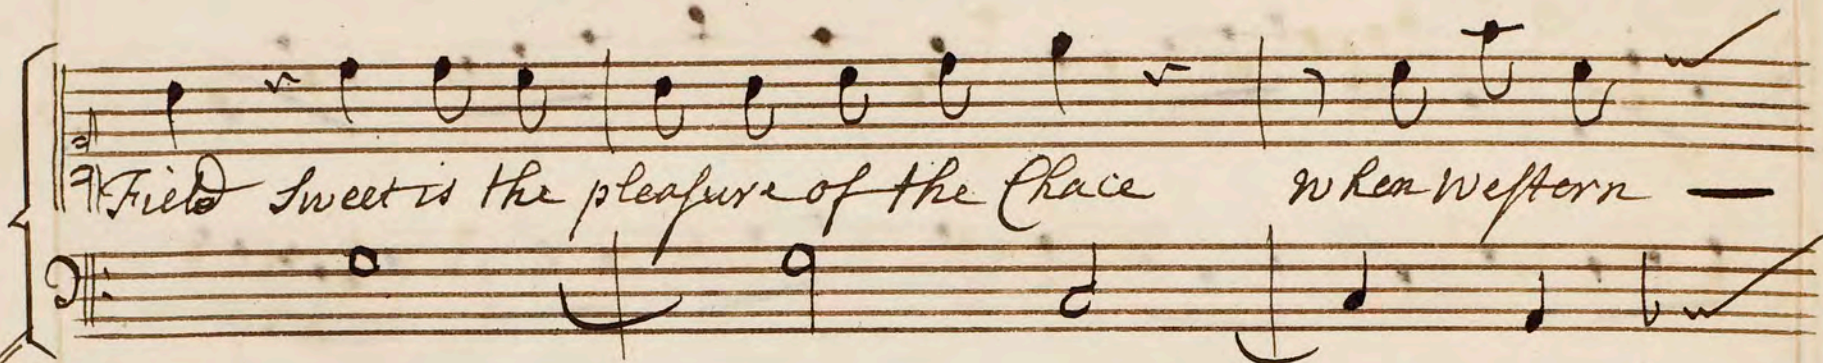 Field Sweet is the pleaſure of the Chace when Weſtern —